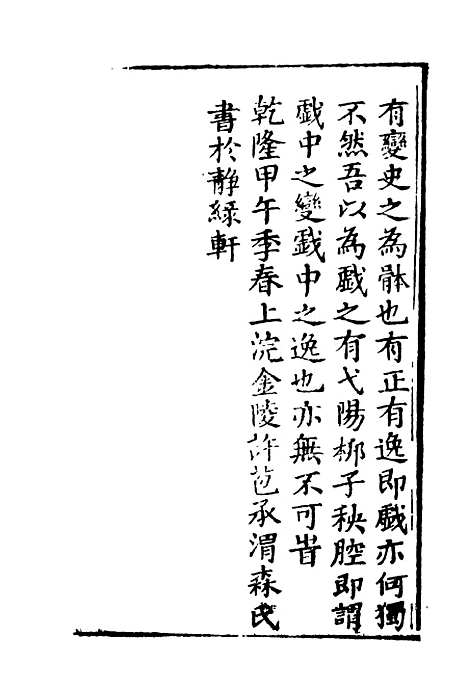 有變史之為骵也有正有逸即戲亦何獨
不然吾以為戲之有弋陽梆子秧腔即謂
戲中之變戲中之逸也亦無不可旹
乾隆甲午季春上浣金陵許苞承渭森氏
書於靜綠軒